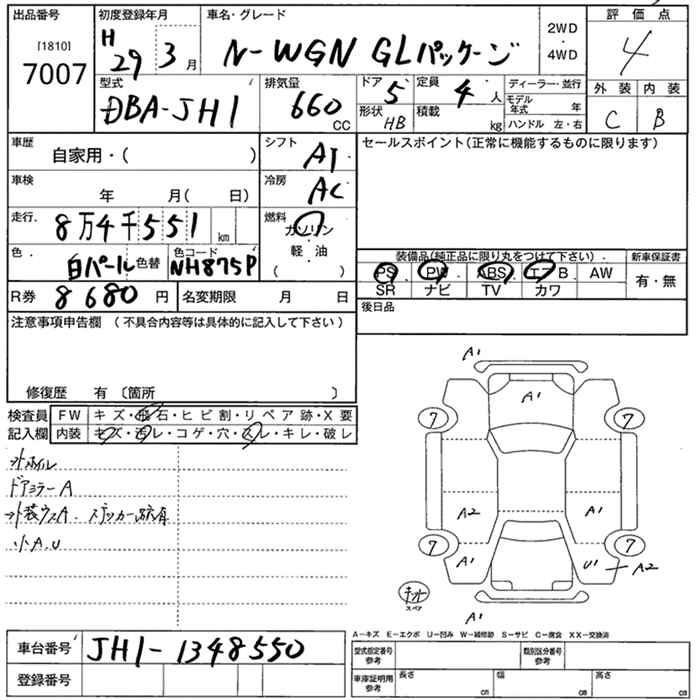 出品番号 初度登録年月 車名・グレード 評価点
[1810]
7007
H 29 3月
N-WGN GLパッケージ
2WD
4WD
4
型式 DBA-JH1
排気量 660 CC
ドア 5
定員 4人
形状 HB
積載 kg
ディーラー・並行
モデル年式 年
ハンドル 左・右
外装 内装
C B
車歴 自家用・( )
シフト AT
セールスポイント(正常に機能するものに限ります)
車検 年 月( 日)
冷房 AC
走行. 8万4千551 km
燃料 ガソリン
軽・油
( )
色. 白パール 色替
色コード NH875P
装備品(純正品に限り丸をつけて下さい).
新車保証書
PS PW ABS エアB AW
有・無
SR ナビ TV カワ
R券 8680円
名変期限 月 日
後日品
注意事項申告欄(不具合内容等は具体的に記入して下さい)
修復歴 有〔箇所 〕
検査員 FW キズ・飛石・ヒビ割・リペア跡・X要
記入欄 内装 キズ・汚レ・コゲ・穴・スレ・キレ・破レ
A1
A1
7 7
ドアミラーA
A2 A1
小A.U
7 7
A1 U1 A2
キット
スペア
A1
A-キズ E-エクボ U-凹み W-補修跡 S-サビ C-腐食 XX-交換済
車台番号 JH1-1348550
登録番号
型式指定番号 参考
類別区分番号 参考
車庫証明用 参考
長さ cm
幅 cm
高さ cm